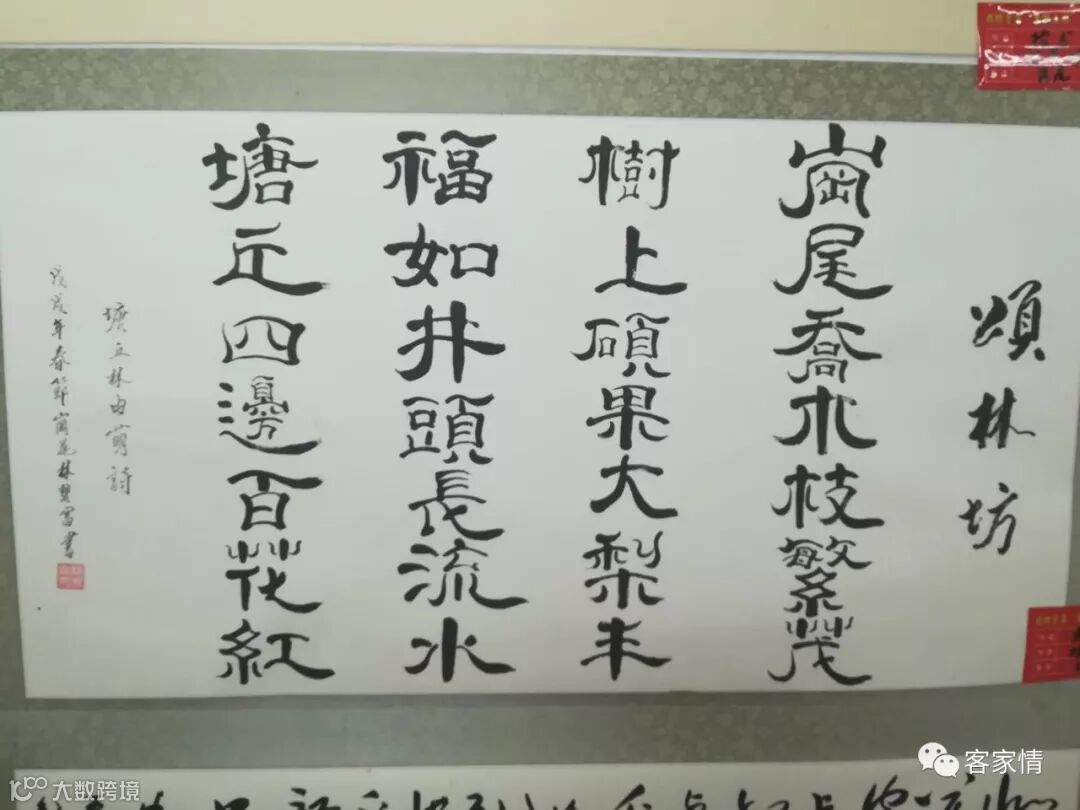 頌林坊
崗尾喬木枝繁茂
樹上碩果大梨丰
福如井頭長流水
塘丘四邊百花紅
塘丘林由萌詩
戊戌年春節崗尾林
書
客家情
10100 大数跨境